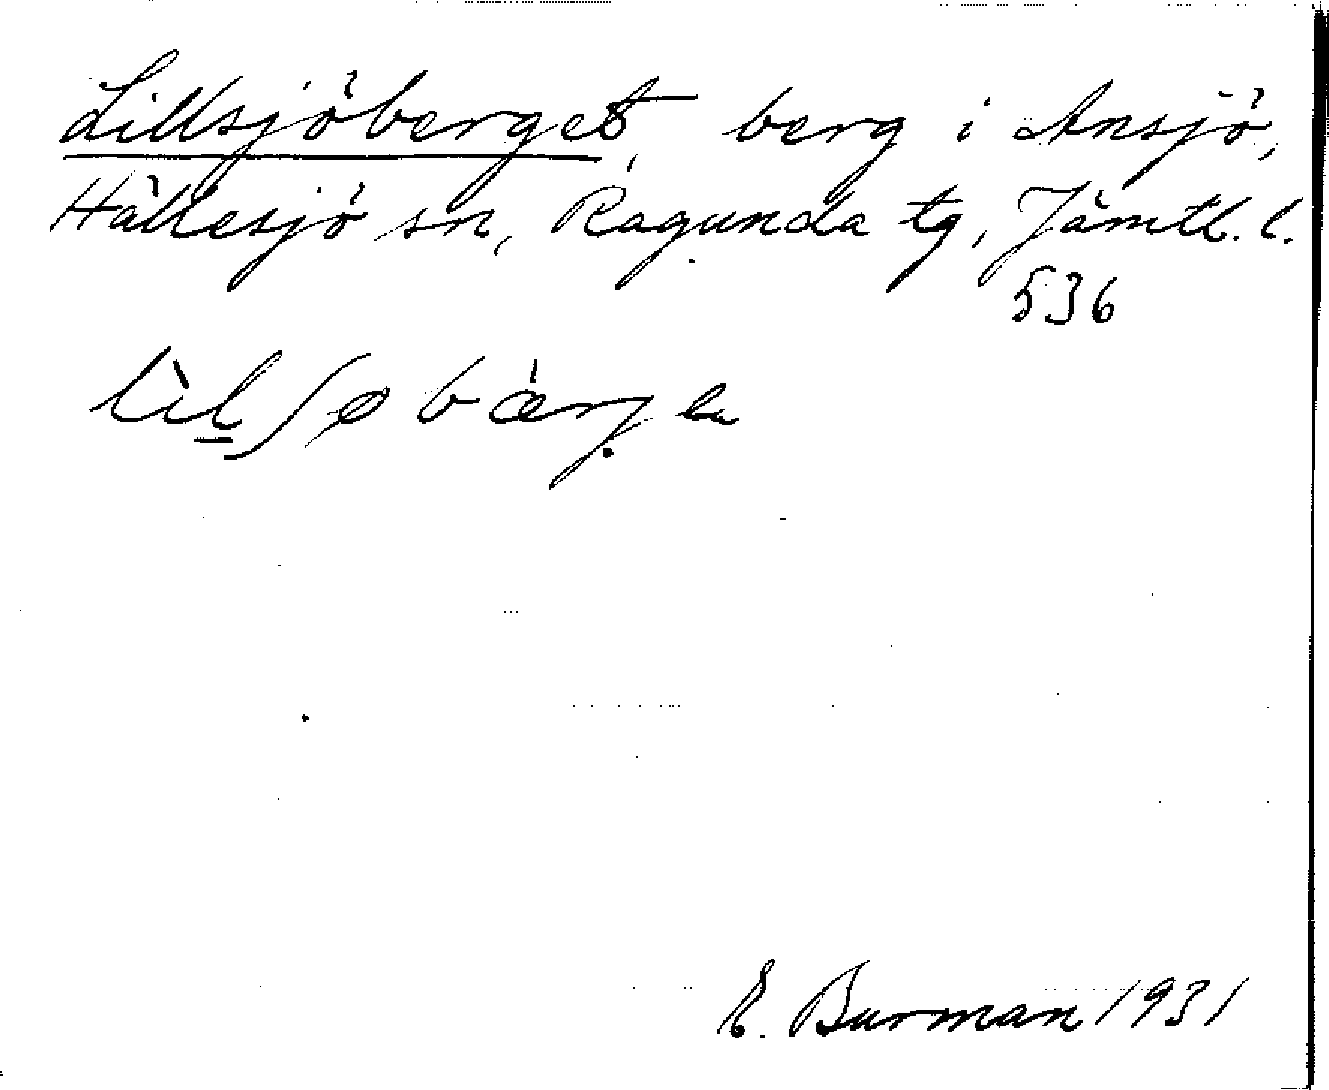 Lillsjöberget, berg i Ansjö,
Hällesjö sn, Ragunda tg, Jämtl. l.
536
E. Burman 1931